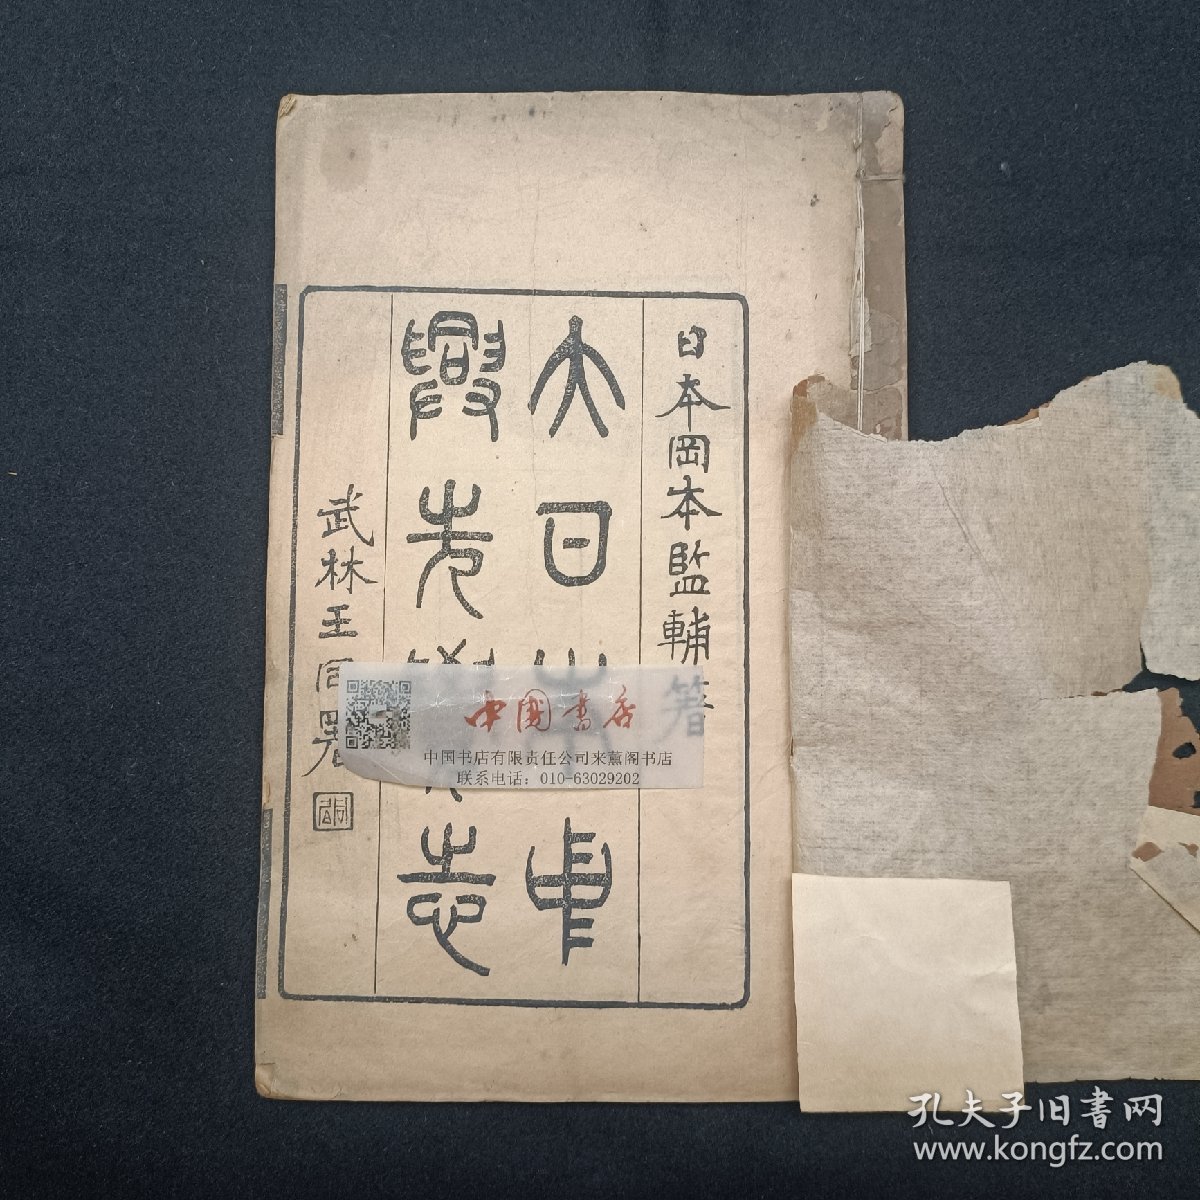 日本岡本監輔著
大日本中
興先覺志
武林王同署
中國書店
中国书店有限责任公司来薰阁书店
联系电话：010-63029202
孔夫子旧書网
www.kongfz.com